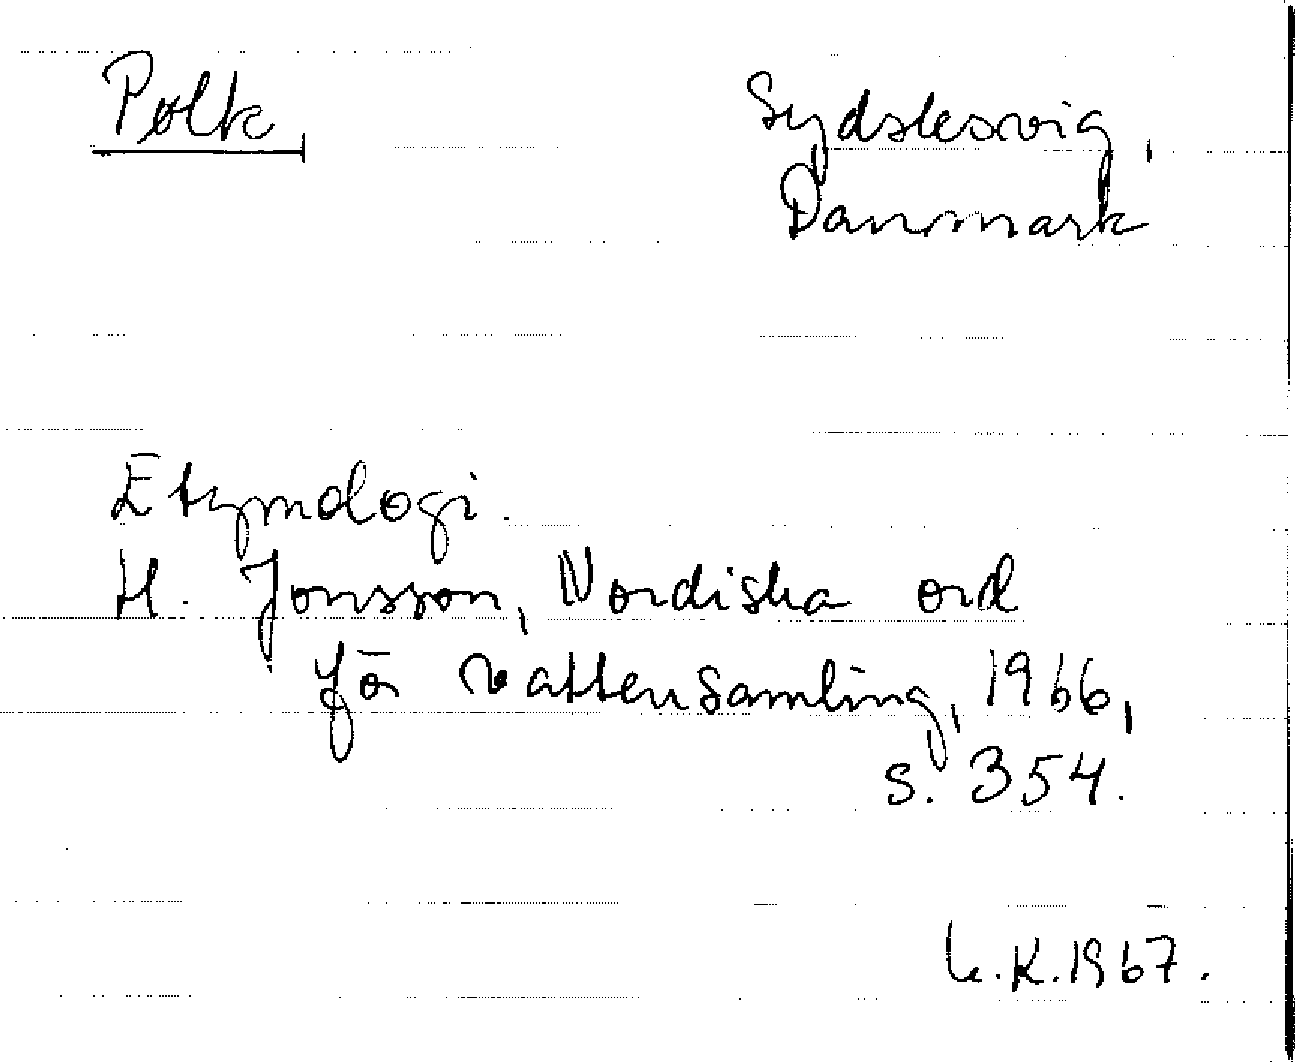 Pølk,
Sydslesvig,
Danmark
Etymologi.
H. Jonsson, Nordiska ord
för vattensamling, 1966,
s. 354.
K. 1967.